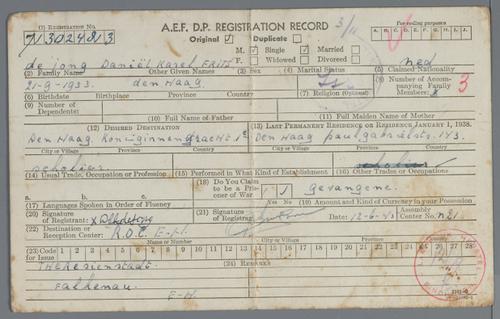 (1) REGISTRATION NO. A.E.F. D.P. REGISTRATION RECORD For coding purposes
N3024813 Original ✓ Duplicate □ 3/11 A. B. C. D. E. F. G. H. I. J.
M. ✓ Single ✓ Married □
F. □ Widowed □ Divorced □
de jong Daniël Karel FRITS ned
(2) Family Name Other Given Names (3) Sex (4) Marital Status (5) Claimed Nationality
21-9-1933. den Haag (8) Number of Accompanying Family Members: 3
(6) Birthdate Birthplace Province Country (7) Religion (Optional)
(9) Number of Dependents: (10) Full Name of Father (11) Full Maiden Name of Mother
(12) DESIRED DESTINATION (13) LAST PERMANENT RESIDENCE OR RESIDENCE JANUARY 1, 1938.
Den Haag. Koninginnengracht. Den Haag paul gabrielstr. 143.
City or Village Province Country City or Village Province Country
scholier
(14) Usual Trade, Occupation or Profession (15) Performed in What Kind of Establishment (16) Other Trades or Occupations
a. b. c. (18) Do You Claim to be a Prisoner of War gevangene.
(17) Languages Spoken in Order of Fluency (19) Amount and Kind of Currency in your Possession
(20) Signature of Registrant: (21) Signature of Registrar: Date: 12-6-45 Assembly Center No. 21
(22) Destination or Reception Center:
Name or Number City or Village Province Country
(23) Code for Issue 1 2 3 4 5 6 7 8 9 10 11 12 13 14 15 16 17 18 19 20 21 22 23 24 25 26 27 28
Theresienstadt (24) REMARKS
Falkenau.